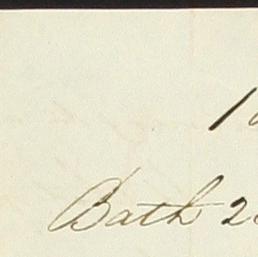 1
Bath 2